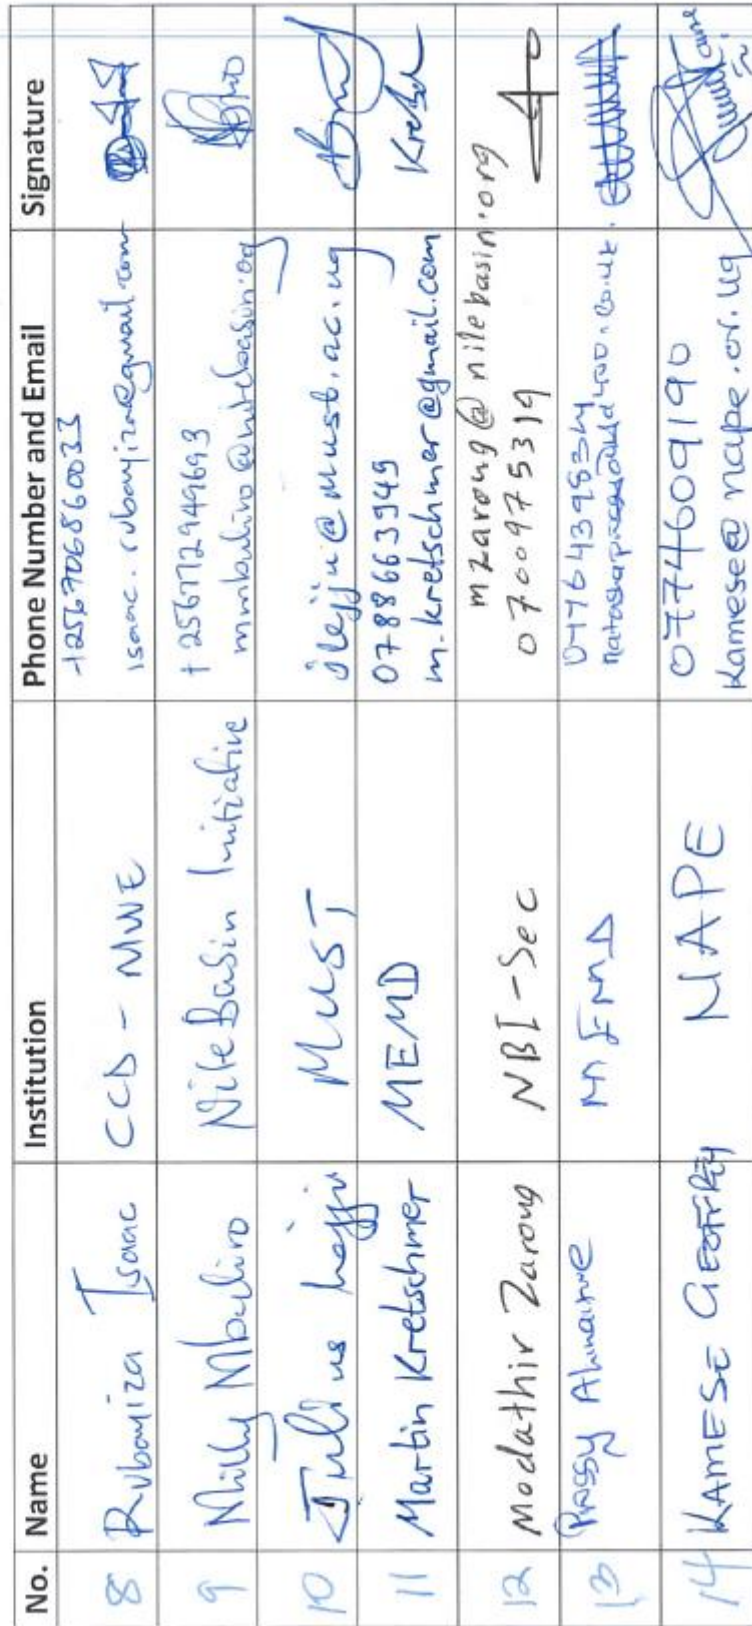 No. Name Institution Phone Number and Email Signature
8 Rubayiza Isaac CCD - MWE +256706860033
isaac.rubayiza@gmail.com
9 Milly Mbuliro Nile Basin Initiative +256772949693
mmbuliro@nilebasin.org
10 Julius lejju MUST jlejju@must.ac.ug
11 Martin Kretschmer MEMD 0788663949 Kretsch
m.kretschmer@gmail.com
12 Modathir Zaroug NBI-Sec mzaroug@nilebasin.org
0700975319
13 Prossy MEMD
14 KAMESE GEOFFREY NAPE 0774609190
kamese@nape.or.ug